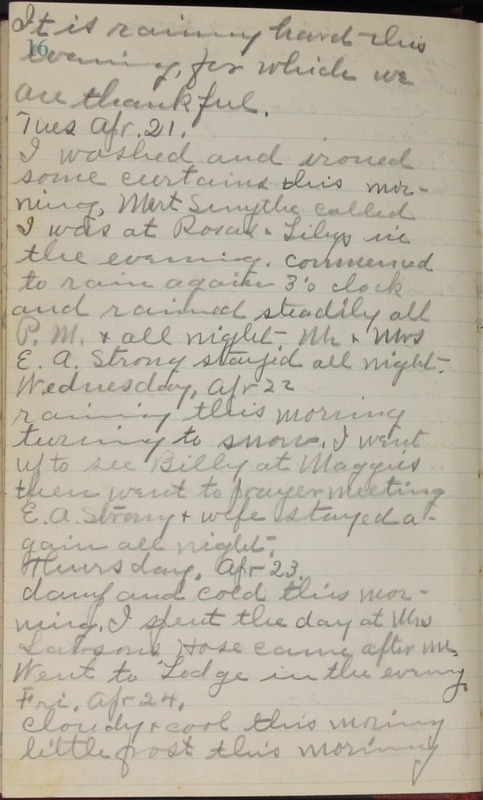 It is rainny hard this
16
evening, for which we
are thankful.
Tues Apr. 21.
I washed and ironed
some curtains this mor-
ning, Mert Smythe called
I was at Rosa's & Libys in
the evening. commenced
to rain again 3 o clock
and rained steadily all
P. M. & all night. Mr & Mrs
E. A. Strong stayed all night.
Wednesday, Apr 22
raining this morning
turning to snow. I went
up to see Billy at Maggies
then went to prayer meeting
E. A. Strong & wife stayed a-
gain all night.
Thursday, Apr 23.
damp and cold this mor-
ning. I spent the day at Mrs
Larsons Hose came after me.
Went to Lodge in the evening
Fri. Apr 24.
cloudy & cool this morning
little frost this morning